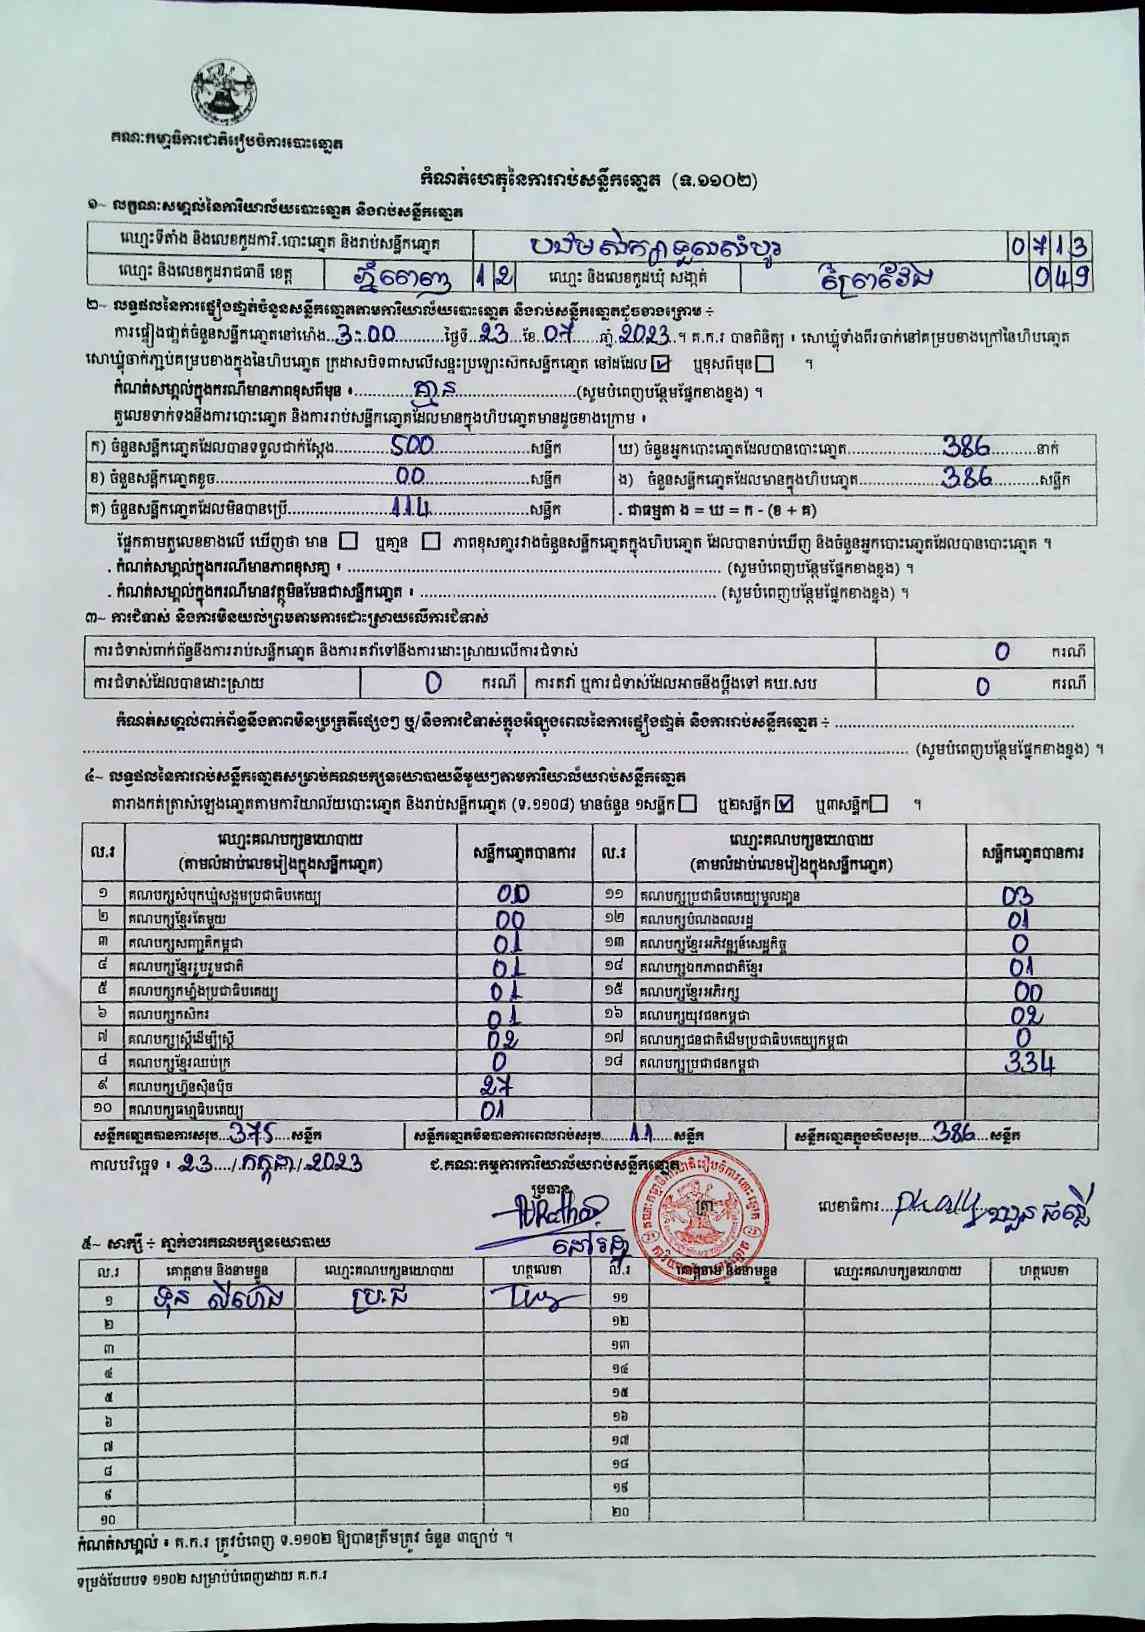 គណៈកម្មាធិការជាតិរៀបចំការបោះឆ្នោត
កំណត់ហេតុនៃការរាប់សន្លឹកឆ្នោត (ទ.១១០២)
១~ លក្ខណៈសម្គាល់នៃការិយាល័យបោះឆ្នោត និងរាប់សន្លឹកឆ្នោត
ឈ្មោះទីតាំង និងលេខកូដការិ.បោះឆ្នោត និងរាប់សន្លឹកឆ្នោត បឋមសិក្សាទួលសំបូរ 0713
ឈ្មោះ និងលេខកូដរាជធានី ខេត្ត ភ្នំពេញ 12 ឈ្មោះ និងលេខកូដឃុំ សង្កាត់ ព្រៃវែង 049
២~ លទ្ធផលនៃការផ្ទៀងផ្ទាត់ចំនួនសន្លឹកឆ្នោតតាមការិយាល័យបោះឆ្នោត និងរាប់សន្លឹកឆ្នោតដូចខាងក្រោម ÷
ការផ្ទៀងផ្ទាត់ចំនួនសន្លឹកឆ្នោតនៅម៉ោង..3:00..........ថ្ងៃទី..23....ខែ..07......ឆ្នាំ..2023..។ គ.ក.រ បានពិនិត្យ ៖ សោឃ្លុំទាំងពីរចាក់នៅគម្របខាងក្រៅនៃហិបឆ្នោត
សោឃ្លុំចាក់ភ្ជាប់គម្របខាងក្នុងនៃហិបឆ្នោត ក្រដាសបិទពាសលើសន្ទះប្រឡោះស៊កសន្លឹកឆ្នោត នៅដដែល ☑ ឬខុសពីមុន ☐ ។
កំណត់សម្គាល់ក្នុងករណីមានភាពខុសពីមុន ៖............គ្មាន............................(សូមបំពេញបន្ថែមផ្នែកខាងខ្នង) ។
តួលេខទាក់ទងនឹងការបោះឆ្នោត និងការរាប់សន្លឹកឆ្នោតដែលមានក្នុងហិបឆ្នោតមានដូចខាងក្រោម ៖
ក) ចំនួនសន្លឹកឆ្នោតដែលបានទទួលជាក់ស្តែង..........500..................សន្លឹក ឃ) ចំនួនអ្នកបោះឆ្នោតដែលបានបោះឆ្នោត..................386............នាក់
ខ) ចំនួនសន្លឹកឆ្នោតខូច..................................00......................សន្លឹក ង) ចំនួនសន្លឹកឆ្នោតដែលមានក្នុងហិបឆ្នោត................386...........សន្លឹក
គ) ចំនួនសន្លឹកឆ្នោតដែលមិនបានប្រើ....................114.....................សន្លឹក . ជាធម្មតា ង = ឃ = ក - (ខ + គ)
ផ្អែកតាមតួលេខខាងលើ ឃើញថា មាន ☐ ឬគ្មាន ☐ ភាពខុសគ្នារវាងចំនួនសន្លឹកឆ្នោតក្នុងហិបឆ្នោត ដែលបានរាប់ឃើញ និងចំនួនអ្នកបោះឆ្នោតដែលបានបោះឆ្នោត ។
. កំណត់សម្គាល់ក្នុងករណីមានភាពខុសគ្នា ៖ ............................................................ (សូមបំពេញបន្ថែមផ្នែកខាងខ្នង) ។
. កំណត់សម្គាល់ក្នុងករណីមានវត្ថុមិនមែនជាសន្លឹកឆ្នោត ៖ ................................................ (សូមបំពេញបន្ថែមផ្នែកខាងខ្នង) ។
៣~ ការជំទាស់ និងការមិនយល់ព្រមតាមការដោះស្រាយលើការជំទាស់
ការជំទាស់ពាក់ព័ន្ធនឹងការរាប់សន្លឹកឆ្នោត និងការតវ៉ាទៅនឹងការដោះស្រាយលើការជំទាស់ 0 ករណី
ការជំទាស់ដែលបានដោះស្រាយ 0 ករណី ការតវ៉ា ឬការជំទាស់ដែលអាចនឹងប្តឹងទៅ គឃ.សប 0 ករណី
កំណត់សម្គាល់ពាក់ព័ន្ធនឹងភាពមិនប្រក្រតីផ្សេងៗ ឬ/និងការជំទាស់ក្នុងអំឡុងពេលនៃការផ្ទៀងផ្ទាត់ និងការរាប់សន្លឹកឆ្នោត ÷ ........................................
.................................................................................................... (សូមបំពេញបន្ថែមផ្នែកខាងខ្នង) ។
៤~ លទ្ធផលនៃការរាប់សន្លឹកឆ្នោតសម្រាប់គណបក្សនយោបាយនីមួយៗតាមការិយាល័យរាប់សន្លឹកឆ្នោត
តារាងកត់ត្រាសំឡេងឆ្នោតតាមការិយាល័យបោះឆ្នោត និងរាប់សន្លឹកឆ្នោត (ទ.១១០៨) មានចំនួន ១សន្លឹក ☐ ឬ២សន្លឹក ☑ ឬ៣សន្លឹក ☐ ។
ល.រ ឈ្មោះគណបក្សនយោបាយ (តាមលំដាប់លេខរៀងក្នុងសន្លឹកឆ្នោត) សន្លឹកឆ្នោតបានការ ល.រ ឈ្មោះគណបក្សនយោបាយ (តាមលំដាប់លេខរៀងក្នុងសន្លឹកឆ្នោត) សន្លឹកឆ្នោតបានការ
១ គណបក្សសំបុកឃ្មុំសង្គមប្រជាធិបតេយ្យ 00 ១១ គណបក្សប្រជាធិបតេយ្យមូលដ្ឋាន 03
២ គណបក្សខ្មែរតែមួយ 00 ១២ គណបក្សបំណងពលរដ្ឋ 01
៣ គណបក្សសញ្ជាតិកម្ពុជា 01 ១៣ គណបក្សខ្មែរអភិវឌ្ឍន៍សេដ្ឋកិច្ច 0
៤ គណបក្សខ្មែររួបរួមជាតិ 01 ១៤ គណបក្សឯកភាពជាតិខ្មែរ 01
៥ គណបក្សកម្លាំងប្រជាធិបតេយ្យ 01 ១៥ គណបក្សខ្មែរអភិរក្ស 00
៦ គណបក្សកសិករ 01 ១៦ គណបក្សយុវជនកម្ពុជា 02
៧ គណបក្សស្ត្រីដើម្បីស្ត្រី 02 ១៧ គណបក្សជនជាតិដើមប្រជាធិបតេយ្យកម្ពុជា 0
៨ គណបក្សខ្មែរឈប់ក្រ 0 ១៨ គណបក្សប្រជាជនកម្ពុជា 334
៩ គណបក្សហ៊្វុនស៊ិនប៉ិច 27
១០ គណបក្សធម្មាធិបតេយ្យ 01
សន្លឹកឆ្នោតបានការសរុប..375....សន្លឹក សន្លឹកឆ្នោតមិនបានការពេលរាប់សរុប......11...សន្លឹក សន្លឹកឆ្នោតក្នុងហិបសរុប...386...សន្លឹក
កាលបរិច្ឆេទ ៖ 23..../.កក្កដា/.2023 ជ.គណៈកម្មការការិយាល័យរាប់សន្លឹកឆ្នោត
ប្រធាន
ត្រា
លេខាធិការ....
នៅ រដ្ឋា
៥~ សាក្សី ÷ ភ្នាក់ងារគណបក្សនយោបាយ
ល.រ គោត្តនាម និងនាមខ្លួន ឈ្មោះគណបក្សនយោបាយ ហត្ថលេខា ល.រ គោត្តនាម និងនាមខ្លួន ឈ្មោះគណបក្សនយោបាយ ហត្ថលេខា
១ ទុន ស៊ីហេង ប្រ.ជ ១១
២ ១២
៣ ១៣
៤ ១៤
៥ ១៥
៦ ១៦
៧ ១៧
៨ ១៨
៩ ១៩
១០ ២០
កំណត់សម្គាល់ ៖ គ.ក.រ ត្រូវបំពេញ ទ.១១០២ ឱ្យបានត្រឹមត្រូវ ចំនួន ៣ច្បាប់ ។
ទម្រង់បែបបទ ១១០២ សម្រាប់បំពេញដោយ គ.ក.រ